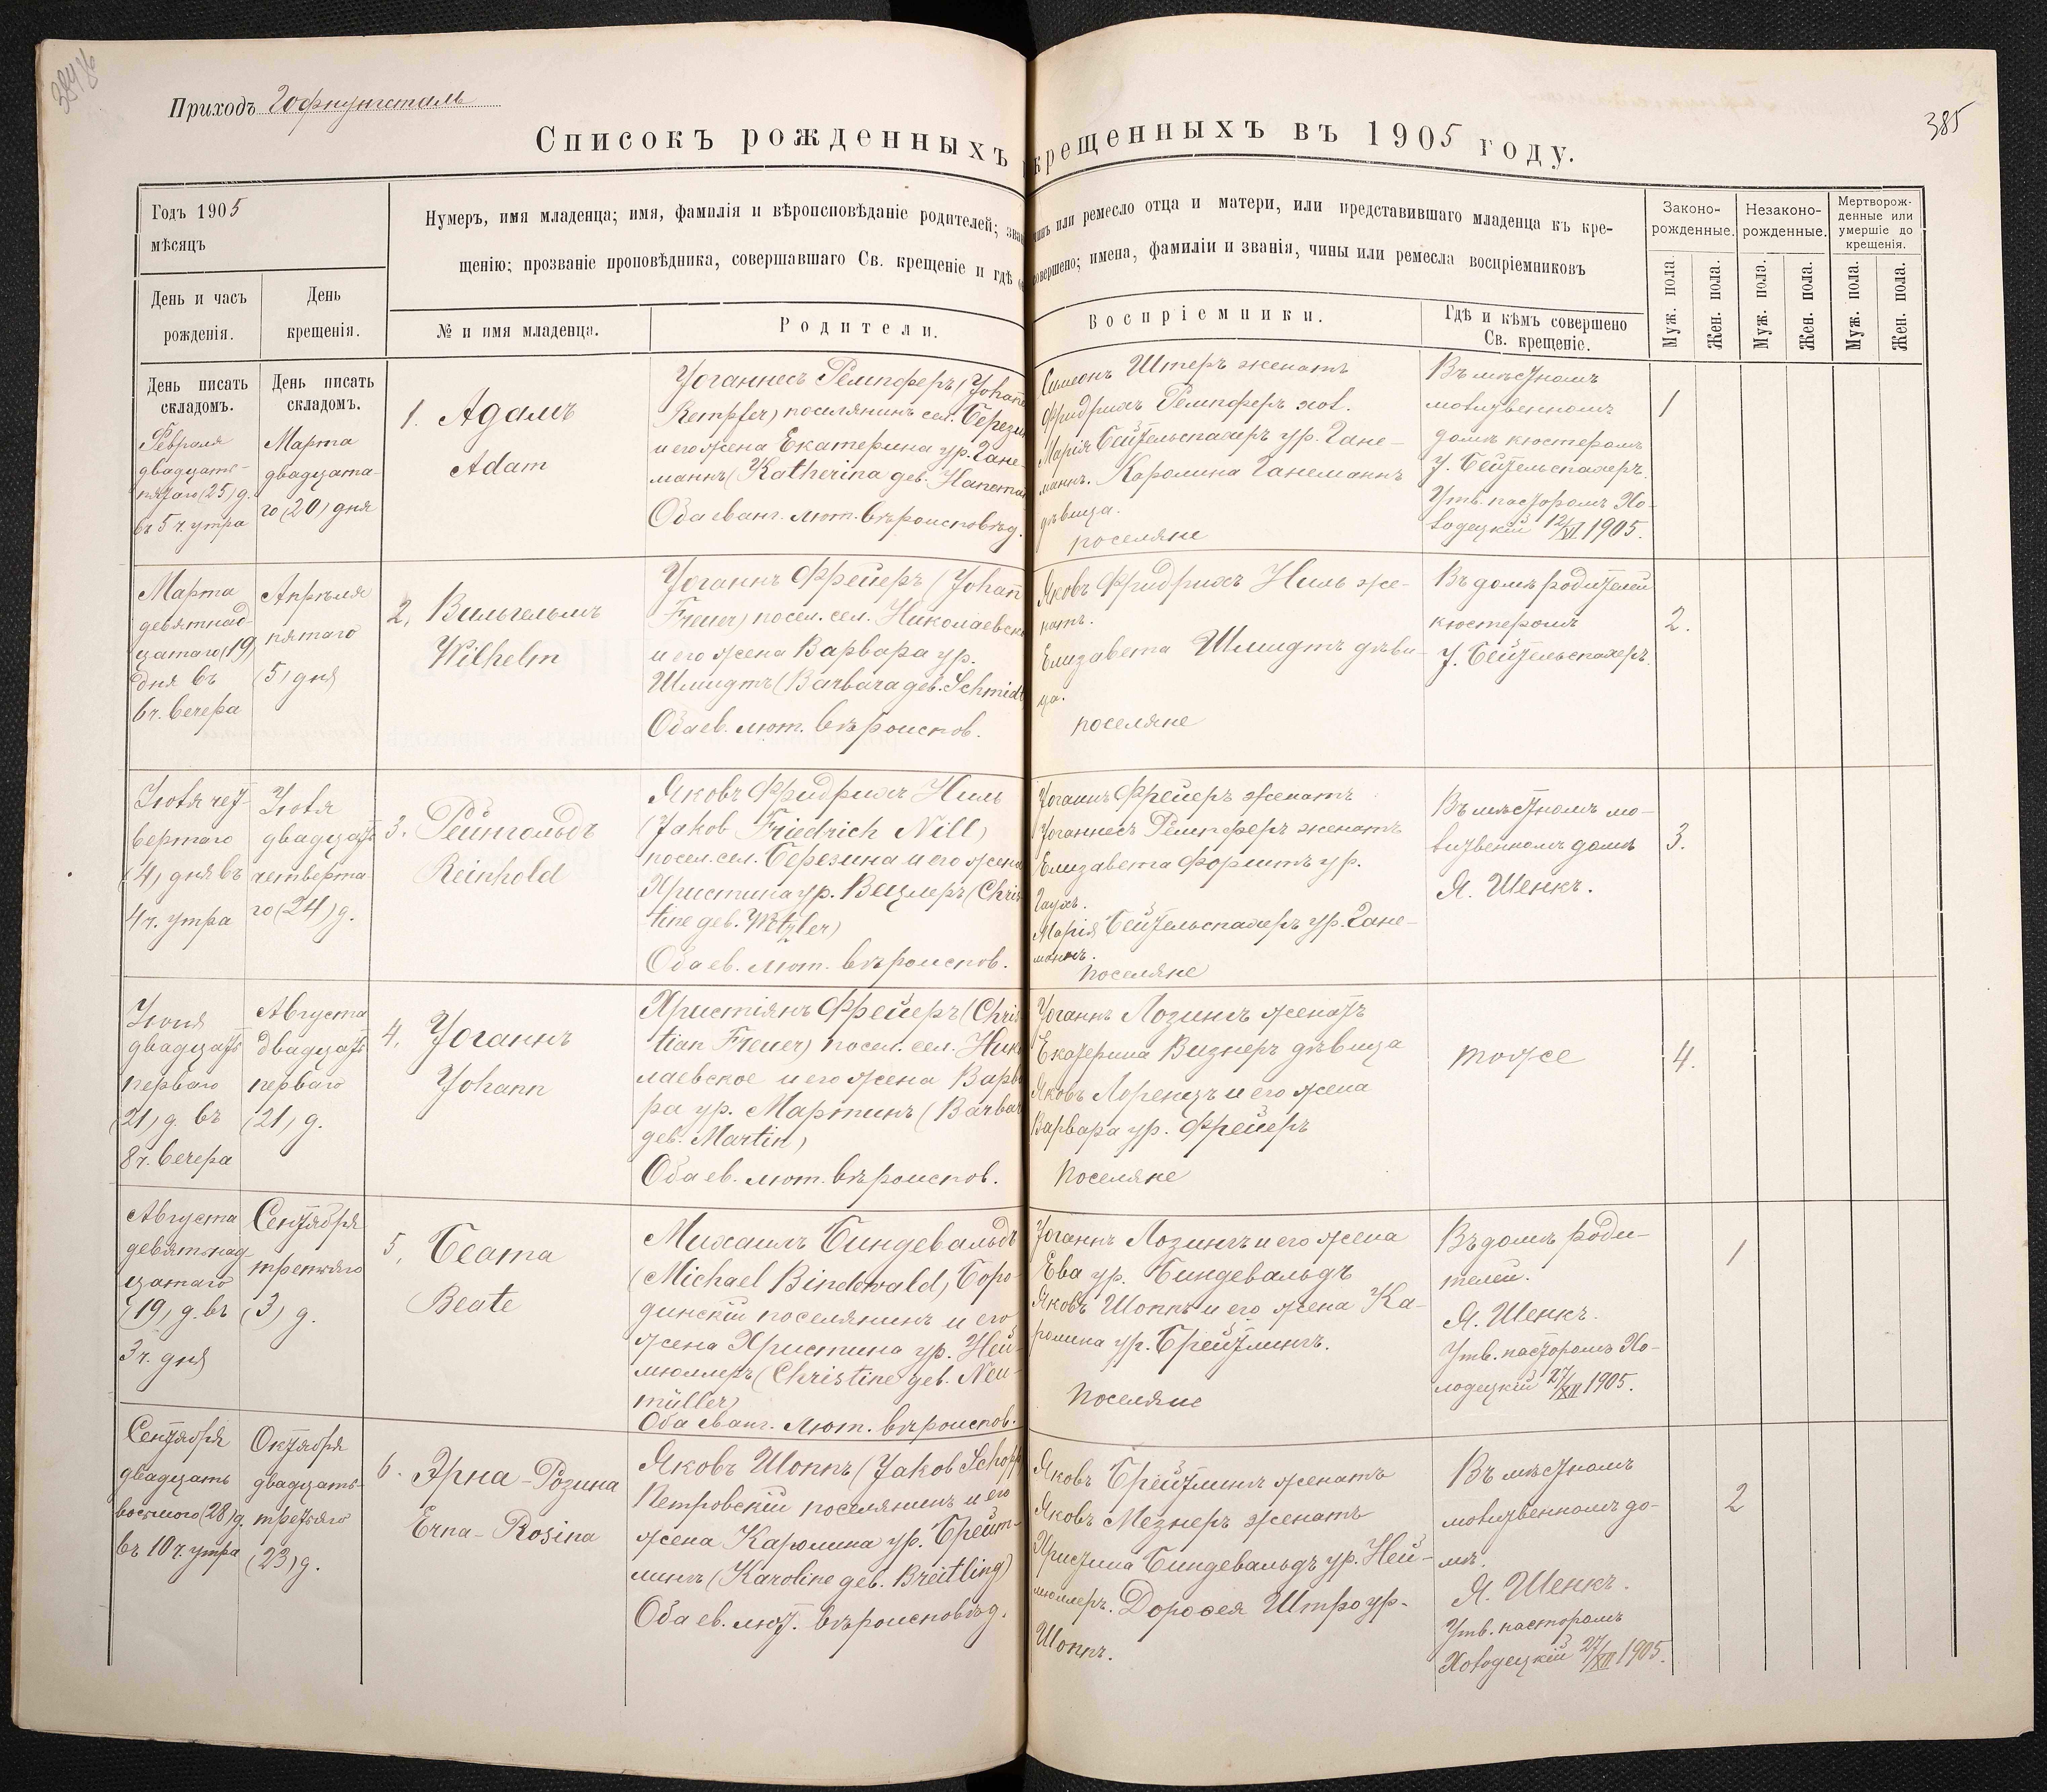 385
Приходъ Гофнунгсталь
Списокъ рожденныхъ и крещенныхъ въ 1905 году.
Годъ 1905
мѣсяцъ
Нумеръ, имя младенца; имя, фамилія и вѣроисповѣданіе родителей; или ремесло отца и матери, или представившаго младенца къ кре-
щенію; прозваніе проповѣдника, совершавшаго Св. крещеніе и гдѣ совершено; имена, фамиліи и званія, чины или ремесла воспріемниковъ
День и часъ
рожденія.
День
крещенія.
№ и имя младенца.
Родители.
Воспріемники.
Гдѣ и кѣмъ совершено
Св. крещеніе.
Законо-
рожденные.
Незаконо-
рожденные.
Мертворож-
денные или
умершіе до
крещенія.
Муж. пола.
Жен. пола.
Муж. пола.
Жен. пола.
Муж. пола.
Жен. пола.
День писать
складомъ.
День писать
складомъ.
Февраля
двадцать-
пятаго (25) д.
въ 5 ч. утра
Марта
двадцата-
го (20) дня
1. Адамъ
Adam
Іоганнесъ Ремпферъ (Johann
Rempfer) поселянинъ сел. Березин
и его жена Екатерина ур. Гане-
маннъ (Katherina geb. Hanema
Оба еванг. лют. вѣроисповѣд.
Симеонъ Штеръ женатъ
Фридрихъ Ремпферъ хол.
Марія Бейтельспахеръ ур. Гане-
маннъ. Каролина Ганеманнъ
дѣвица.
поселяне
Въ мѣстномъ
молитвенномъ
домѣ кюстеромъ
І. Бейтельспахеръ.
Утв. пасторомъ Хо-
лодецкій 12/XI 1905.
1
Марта
девятнад-
цатаго (19)
дня въ
6 ч. вечера
Апрѣля
пятаго
(5) дня
2. Вильгельмъ
Wilhelm
Іоганнъ Фрейеръ (Johann
Freuer) посел. сел. Николаевско
и его жена Варвара ур.
Шмидтъ (Barbara geb. Schmidt
Оба ев. лют. вѣроиспов.
Яковъ Фридрихъ Нилъ же-
натъ.
Елизавета Шмидтъ дѣви-
ца.
поселяне
Въ домѣ родителей
кюстеромъ
І. Бейтельспахеръ.
2.
Іюля чет-
вертаго
(4) дня въ
4 ч. утра
Іюля
двадцать
четверта-
го (24) д.
3. Рейнгольдъ
Reinhold
Яковъ Фридрихъ Нилъ
(Jakob Friedrich Nill)
посел. сел. Березина и его жена
Христина ур. Вецлеръ (Chris-
tine geb. Wetzler)
Оба ев. лют. вѣроиспов.
Іоганнъ Фрейеръ женатъ
Іоганнесъ Ремпферъ женатъ
Елизавета Форшитъ ур.
Гаухъ.
Марія Бейтельспахеръ ур. Гане-
маннъ.
поселяне
Въ мѣстномъ мо-
литвенномъ домѣ
Я. Шенкъ.
3.
Іюня
двадцать
перваго
(21) д. въ
8 ч. вечера
Августа
двадцать
перваго
(21) д.
4. Іоганнъ
Johann
Христіянъ Фрейеръ (Chris
tian Freuer) посел. сел. Нико
лаевское и его жена Варва
ра ур. Мартинъ (Barbara
geb. Martin)
Оба ев. лют. вѣроиспов.
Іоганнъ Лозингъ женатъ
Екатерина Визнеръ дѣвица
Яковъ Лоренцъ и его жена
Варвара ур. Фрейеръ
Поселяне
тоже
4.
Августа
девятнад
цатаго
(19) д. въ
3 ч. дня
Сентября
третьяго
(3) д.
5. Беата
Beate
Михаилъ Биндевальдъ
(Michael Bindewald) Боро-
динскій поселянинъ и его
жена Христина ур. Ней-
мюллеръ (Christine geb. Neu-
müller)
Оба еванг. лют. вѣроиспов.
Іоганнъ Лозингъ и его жена
Ева ур. Биндевальдъ
Яковъ Шоппъ и его жена Ка-
ролина ур. Брейтлингъ.
Поселяне
Въ домѣ роди-
телей.
Я. Шенкъ.
Утв. пасторомъ Хо-
лодецкій 27/XII 1905.
1
Сентября
двадцать
восьмого (28) д.
въ 10 ч. утра
Октября
двадцать-
третьяго
(23) д.
6. Эрна-Розина
Erna-Rosina
Яковъ Шоппъ (Jakob Schopp
Петровскій поселянинъ и его
жена Каролина ур. Брейт-
лингъ (Karoline geb. Breitling)
Оба ев. лют. вѣроисповѣд.
Яковъ Брейтлингъ женатъ
Яковъ Мезнеръ женатъ
Христина Биндевальдъ ур. Ней-
мюллеръ. Доровея Штро ур.
Шоппъ.
Въ мѣстномъ
молитвенномъ до-
мѣ.
Я. Шенкъ.
Утв. пасторомъ
Холодецкій 27/XII 1905.
2